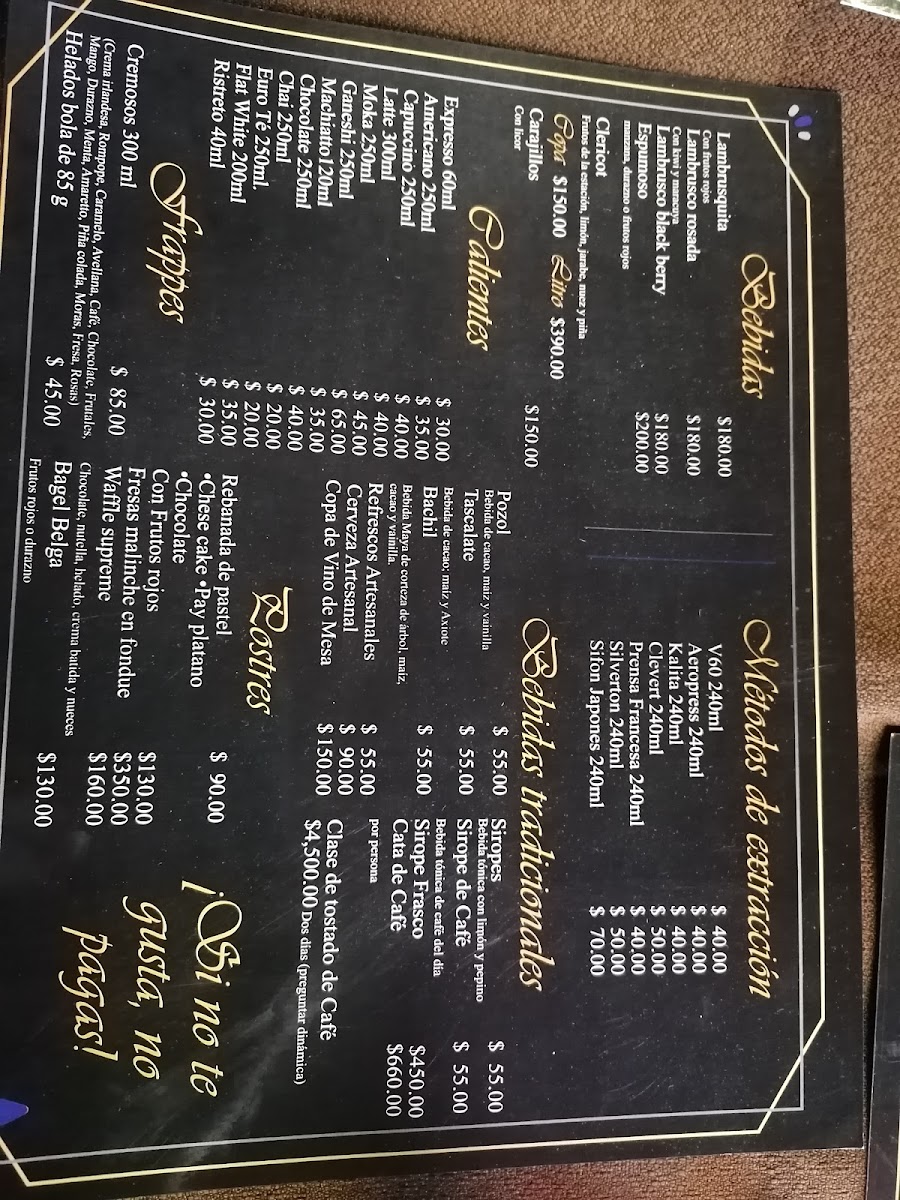 Bebidas
Lambrusquita $180.00
Con frutos rojos
Lambrusco rosada $180.00
Con kiwi y maracuya
Lambrusco black berry $180.00
Espumoso $200.00
manzana, durazno o frutos rojos
Clericot
Frutos de la estación, limón, jarabe, nuez y piña
Copa $150.00 Litro $390.00
Carajillos $150.00
Con licor
Calientes
Expresso 60ml $ 30.00
Americano 250ml $ 35.00
Capuccino 250ml $ 40.00
Latte 300ml $ 40.00
Moka 250ml $ 45.00
Ganeshi 250ml $ 65.00
Machiatto120ml $ 35.00
Chocolate 250ml $ 40.00
Chai 250ml $ 20.00
Euro Té 250ml. $ 20.00
Flat White 200ml $ 35.00
Ristreto 40ml $ 30.00
Frappes
Cremosos 300 ml $ 85.00
(Crema irlandesa, Rompope, Caramelo, Avellana, Café, Chocolate, Frutales,
Mango, Durazno, Menta, Amaretto, Piña colada, Moras, Fresa, Rosas)
Helados bola de 85 g $ 45.00
Métodos de extracción
V60 240ml $ 40.00
Aeropress 240ml $ 40.00
Kalita 240ml $ 40.00
Clevert 240ml $ 50.00
Prensa Francesa 240ml $ 40.00
Silverton 240ml $ 50.00
Sifon Japones 240ml $ 70.00
Bebidas tradicionales
Pozol $ 55.00
Bebida de cacao, maíz y vainilla
Tascalate $ 55.00
Bebida de cacao; maíz y Axiote
Bachil $ 55.00
Bebida Maya de corteza de árbol, maíz,
cacao y vainilla.
Refrescos Artesanales $ 55.00
Cerveza Artesanal $ 90.00
Copa de Vino de Mesa $150.00
Siropes $ 55.00
Bebida tónica con limón y pepino
Sirope de Café $ 55.00
Bebida tónica de café del día
Sirope Frasco $450.00
Cata de Café $660.00
por persona
Clase de tostado de Café
$4,500.00 Dos días (preguntar dinámica)
Postres
Rebanada de pastel $ 90.00
•Chese cake •Pay platano
•Chocolate
Con Frutos rojos $130.00
Fresas malinche en fondue $350.00
Waffle supreme $160.00
Chocolate, nutella, helado, crema batida y nueces
Bagel Belga $130.00
Frutos rojos o durazno
¡Si no te
gusta, no
pagas!